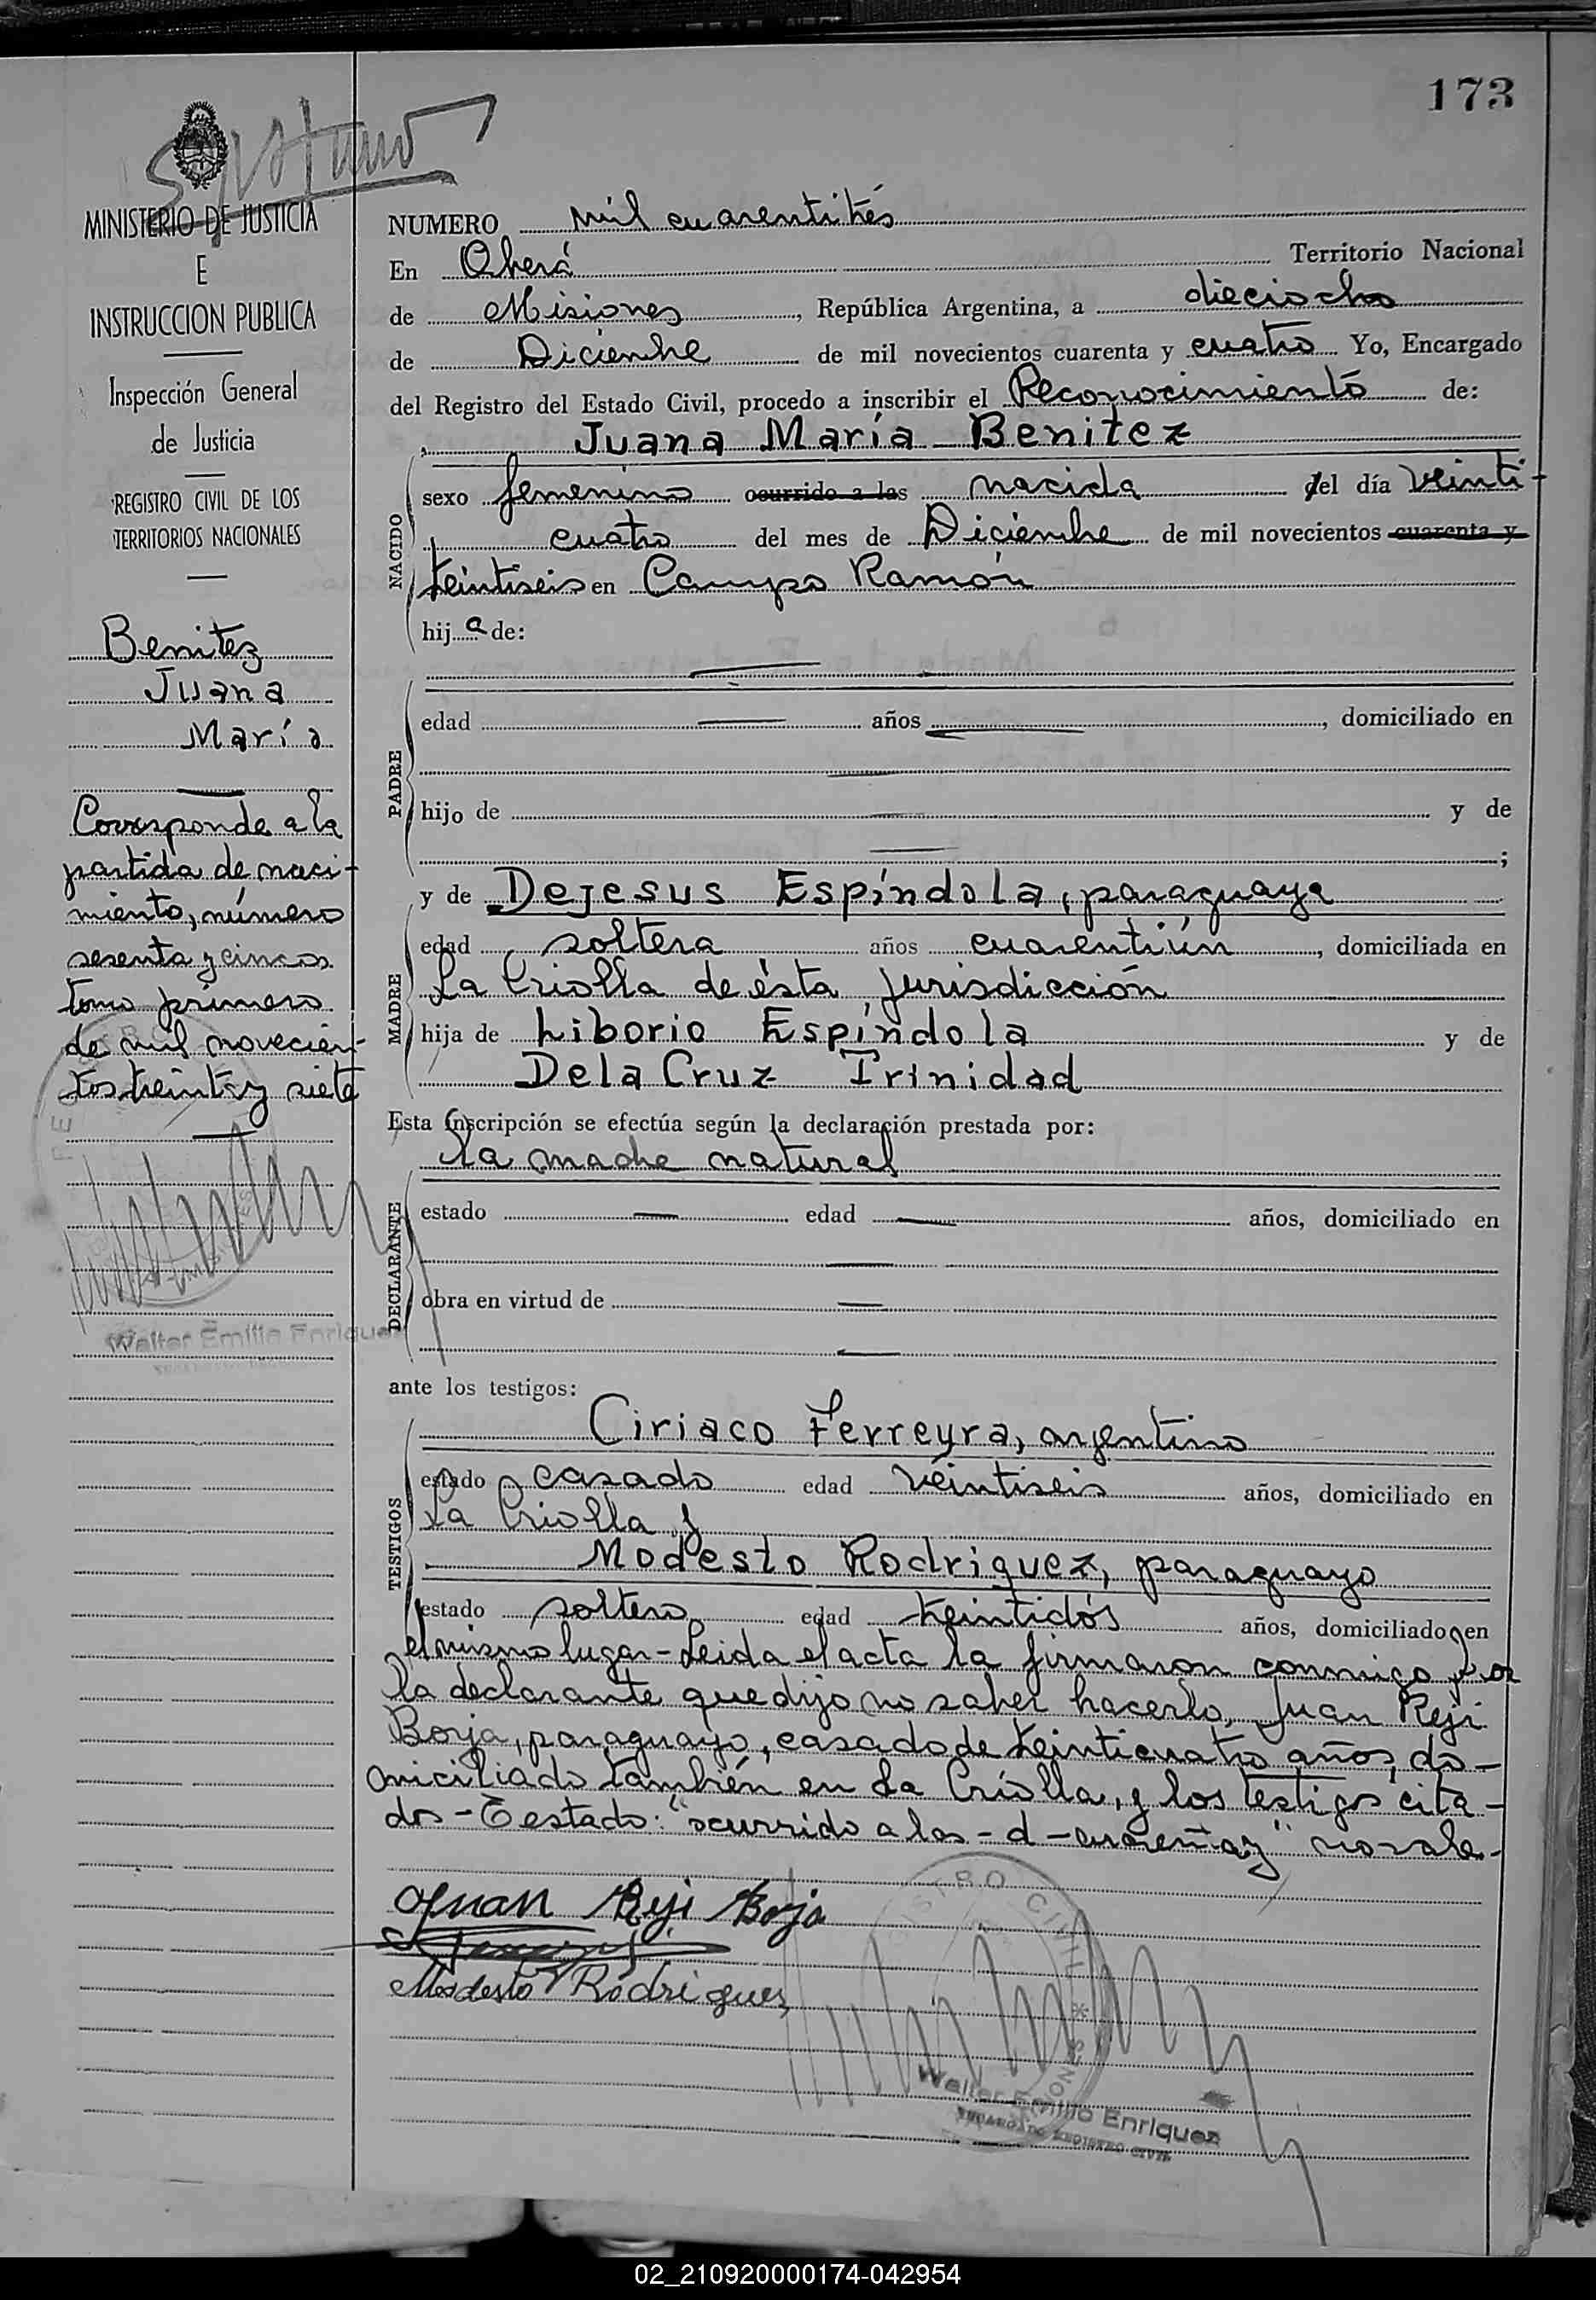 173
MINISTERIO DE JUSTICIA
E
INSTRUCCION PUBLICA
Inspección General
de Justicia
REGISTRO CIVIL DE LOS
TERRITORIOS NACIONALES
Benitez
Juana
María
Corresponde a la
partida de naci-
miento, número
sesenta y cinco
tomo primero
de mil novecien-
tos treinta y siete
Walter Emilio Enriquez
NUMERO mil cuarentitrés
En Oberá Territorio Nacional
de Misiones, República Argentina, a dieciocho
de Diciembre de mil novecientos cuarenta y cuatro Yo, Encargado
del Registro del Estado Civil, procedo a inscribir el Reconocimiento de:
Juana María Benitez
NACIDO
sexo femenino ocurrido a las nacida del día veinti-
cuatro del mes de Diciembre de mil novecientos cuarenta y
treintiseis en Campo Ramón
hija de:
PADRE
edad años, domiciliado en
hijo de y de
;
MADRE
y de Dejesus Espíndola, paraguaya
edad soltera años cuarentiún, domiciliada en
La Criolla de ésta jurisdicción
hija de Liborio Espíndola y de
Dela Cruz Trinidad
Esta inscripción se efectúa según la declaración prestada por:
la madre natural
DECLARANTE
estado edad años, domiciliado en
obra en virtud de
ante los testigos:
TESTIGOS
Ciriaco Ferreyra, argentino
estado casado edad veintiseis años, domiciliado en
La Criolla y
Modesto Rodriguez, paraguayo
estado soltero edad treintidós años, domiciliado en
el mismo lugar - Leida el acta la firmaron conmigo por
la declarante que dijo no saber hacerlo, Juan Reji
Borja, paraguayo, casado de treinticuatro años, do-
miciliado también en La Criolla, y los testigos cita-
dos - Testado: "ocurrido a las - d - cuarenta y" no vale.-
Juan Reji Borja
Modesto Rodriguez
REGISTRO CIVIL
Walter Emilio Enriquez
ENCARGADO REGISTRO CIVIL
02_210920000174-042954